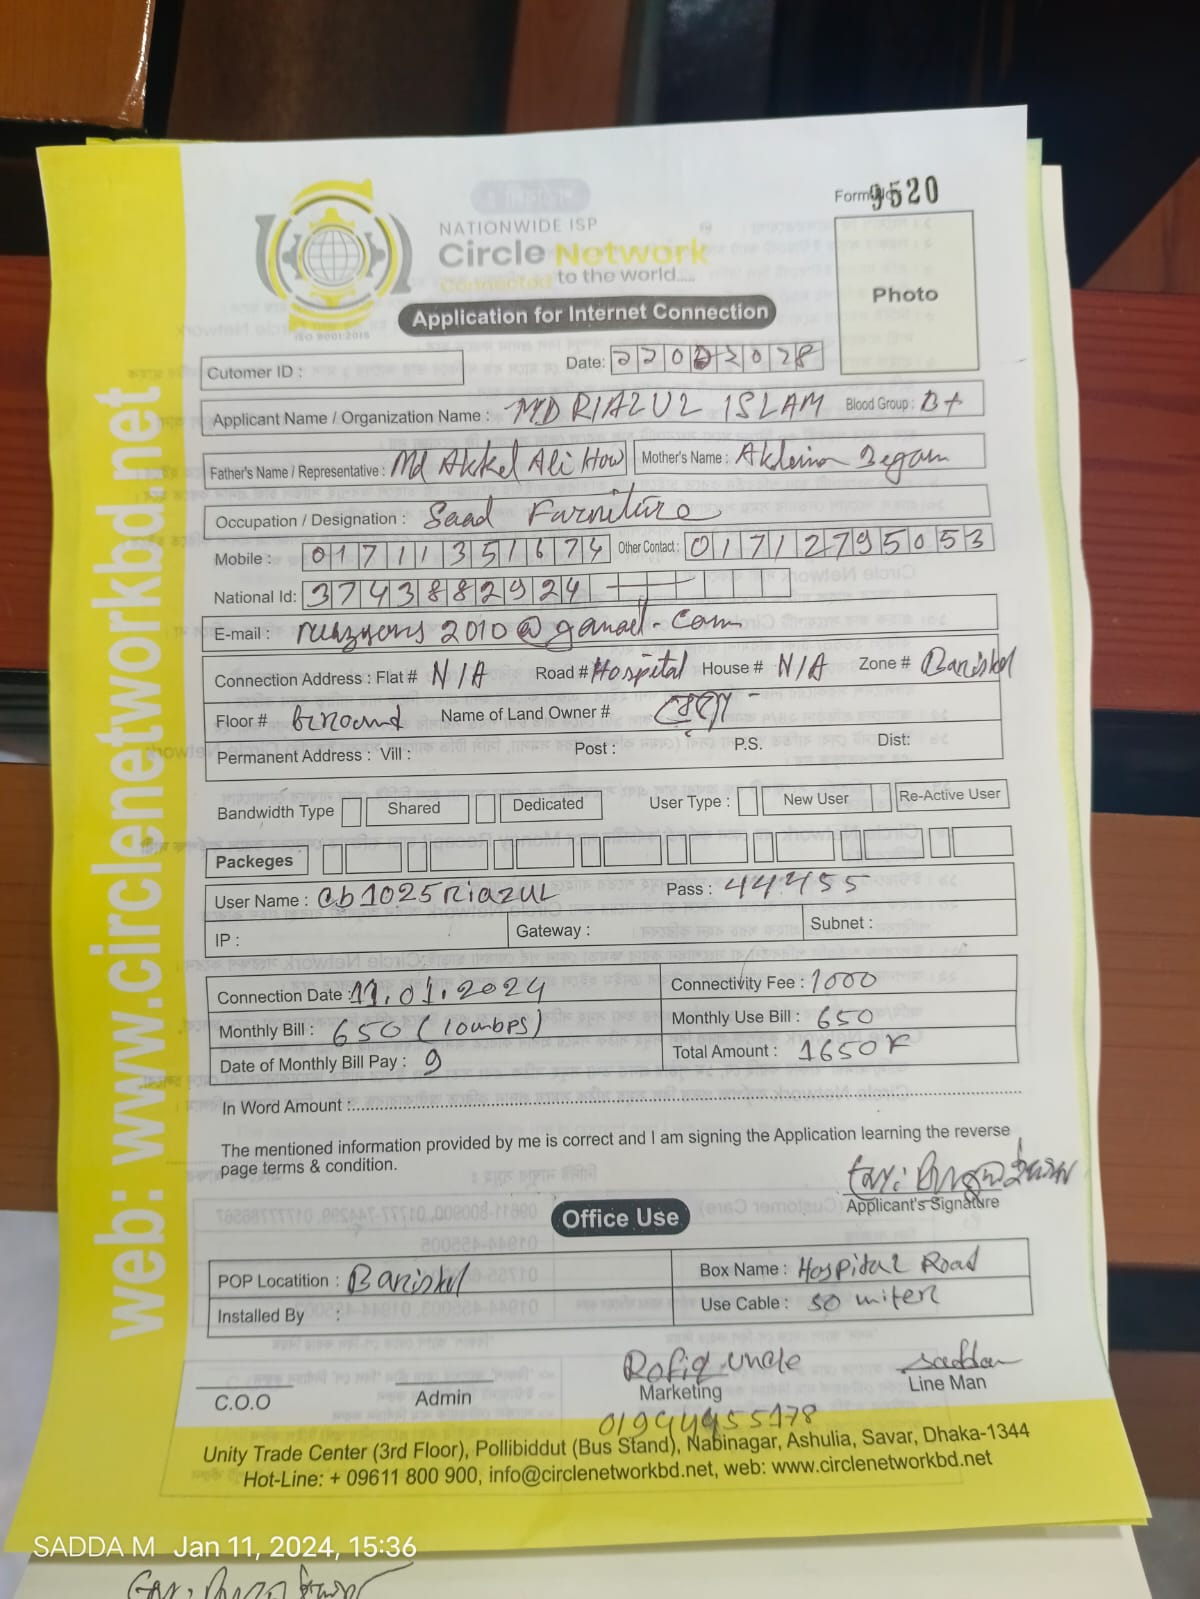 Form No 9520
NATIONWIDE ISP
Circle Network
Connected to the world.....
ISO 9001:2015
Application for Internet Connection
Photo
Cutomer ID :
Date:
Applicant Name / Organization Name : MD RIAZUL ISLAM Blood Group : B+
Father's Name / Representative : Md Akkel Ali How Mother's Name : Begam
Occupation / Designation : Saad Farniture
Mobile : 01711351674 Other Contact : 01712795053
National Id: 3743882924
E-mail :
Connection Address : Flat # N/A Road # Hospital House # N/A Zone #
Floor # Name of Land Owner #
Permanent Address : Vill : Post : P.S. Dist:
Bandwidth Type Shared Dedicated User Type : New User Re-Active User
Packeges
User Name : cb1025Riazul Pass : 444455
IP : Gateway : Subnet :
Connection Date : 11.01.2024 Connectivity Fee : 1000
Monthly Bill : 650 (10mbps) Monthly Use Bill : 650
Date of Monthly Bill Pay : 9 Total Amount : 1650
In Word Amount :
The mentioned information provided by me is correct and I am signing the Application learning the reverse
page terms & condition.
Applicant's Signature
Office Use
POP Locatition : Box Name : Hospital Road
Installed By : Use Cable : 50 miter
Rofiq uncle Saddam
C.O.O Admin Marketing Line Man
Unity Trade Center (3rd Floor), Pollibiddut (Bus Stand), Nabinagar, Ashulia, Savar, Dhaka-1344
Hot-Line: + 09611 800 900, info@circlenetworkbd.net, web: www.circlenetworkbd.net
web: www.circlenetworkbd.net
SADDA M Jan 11, 2024, 15:36